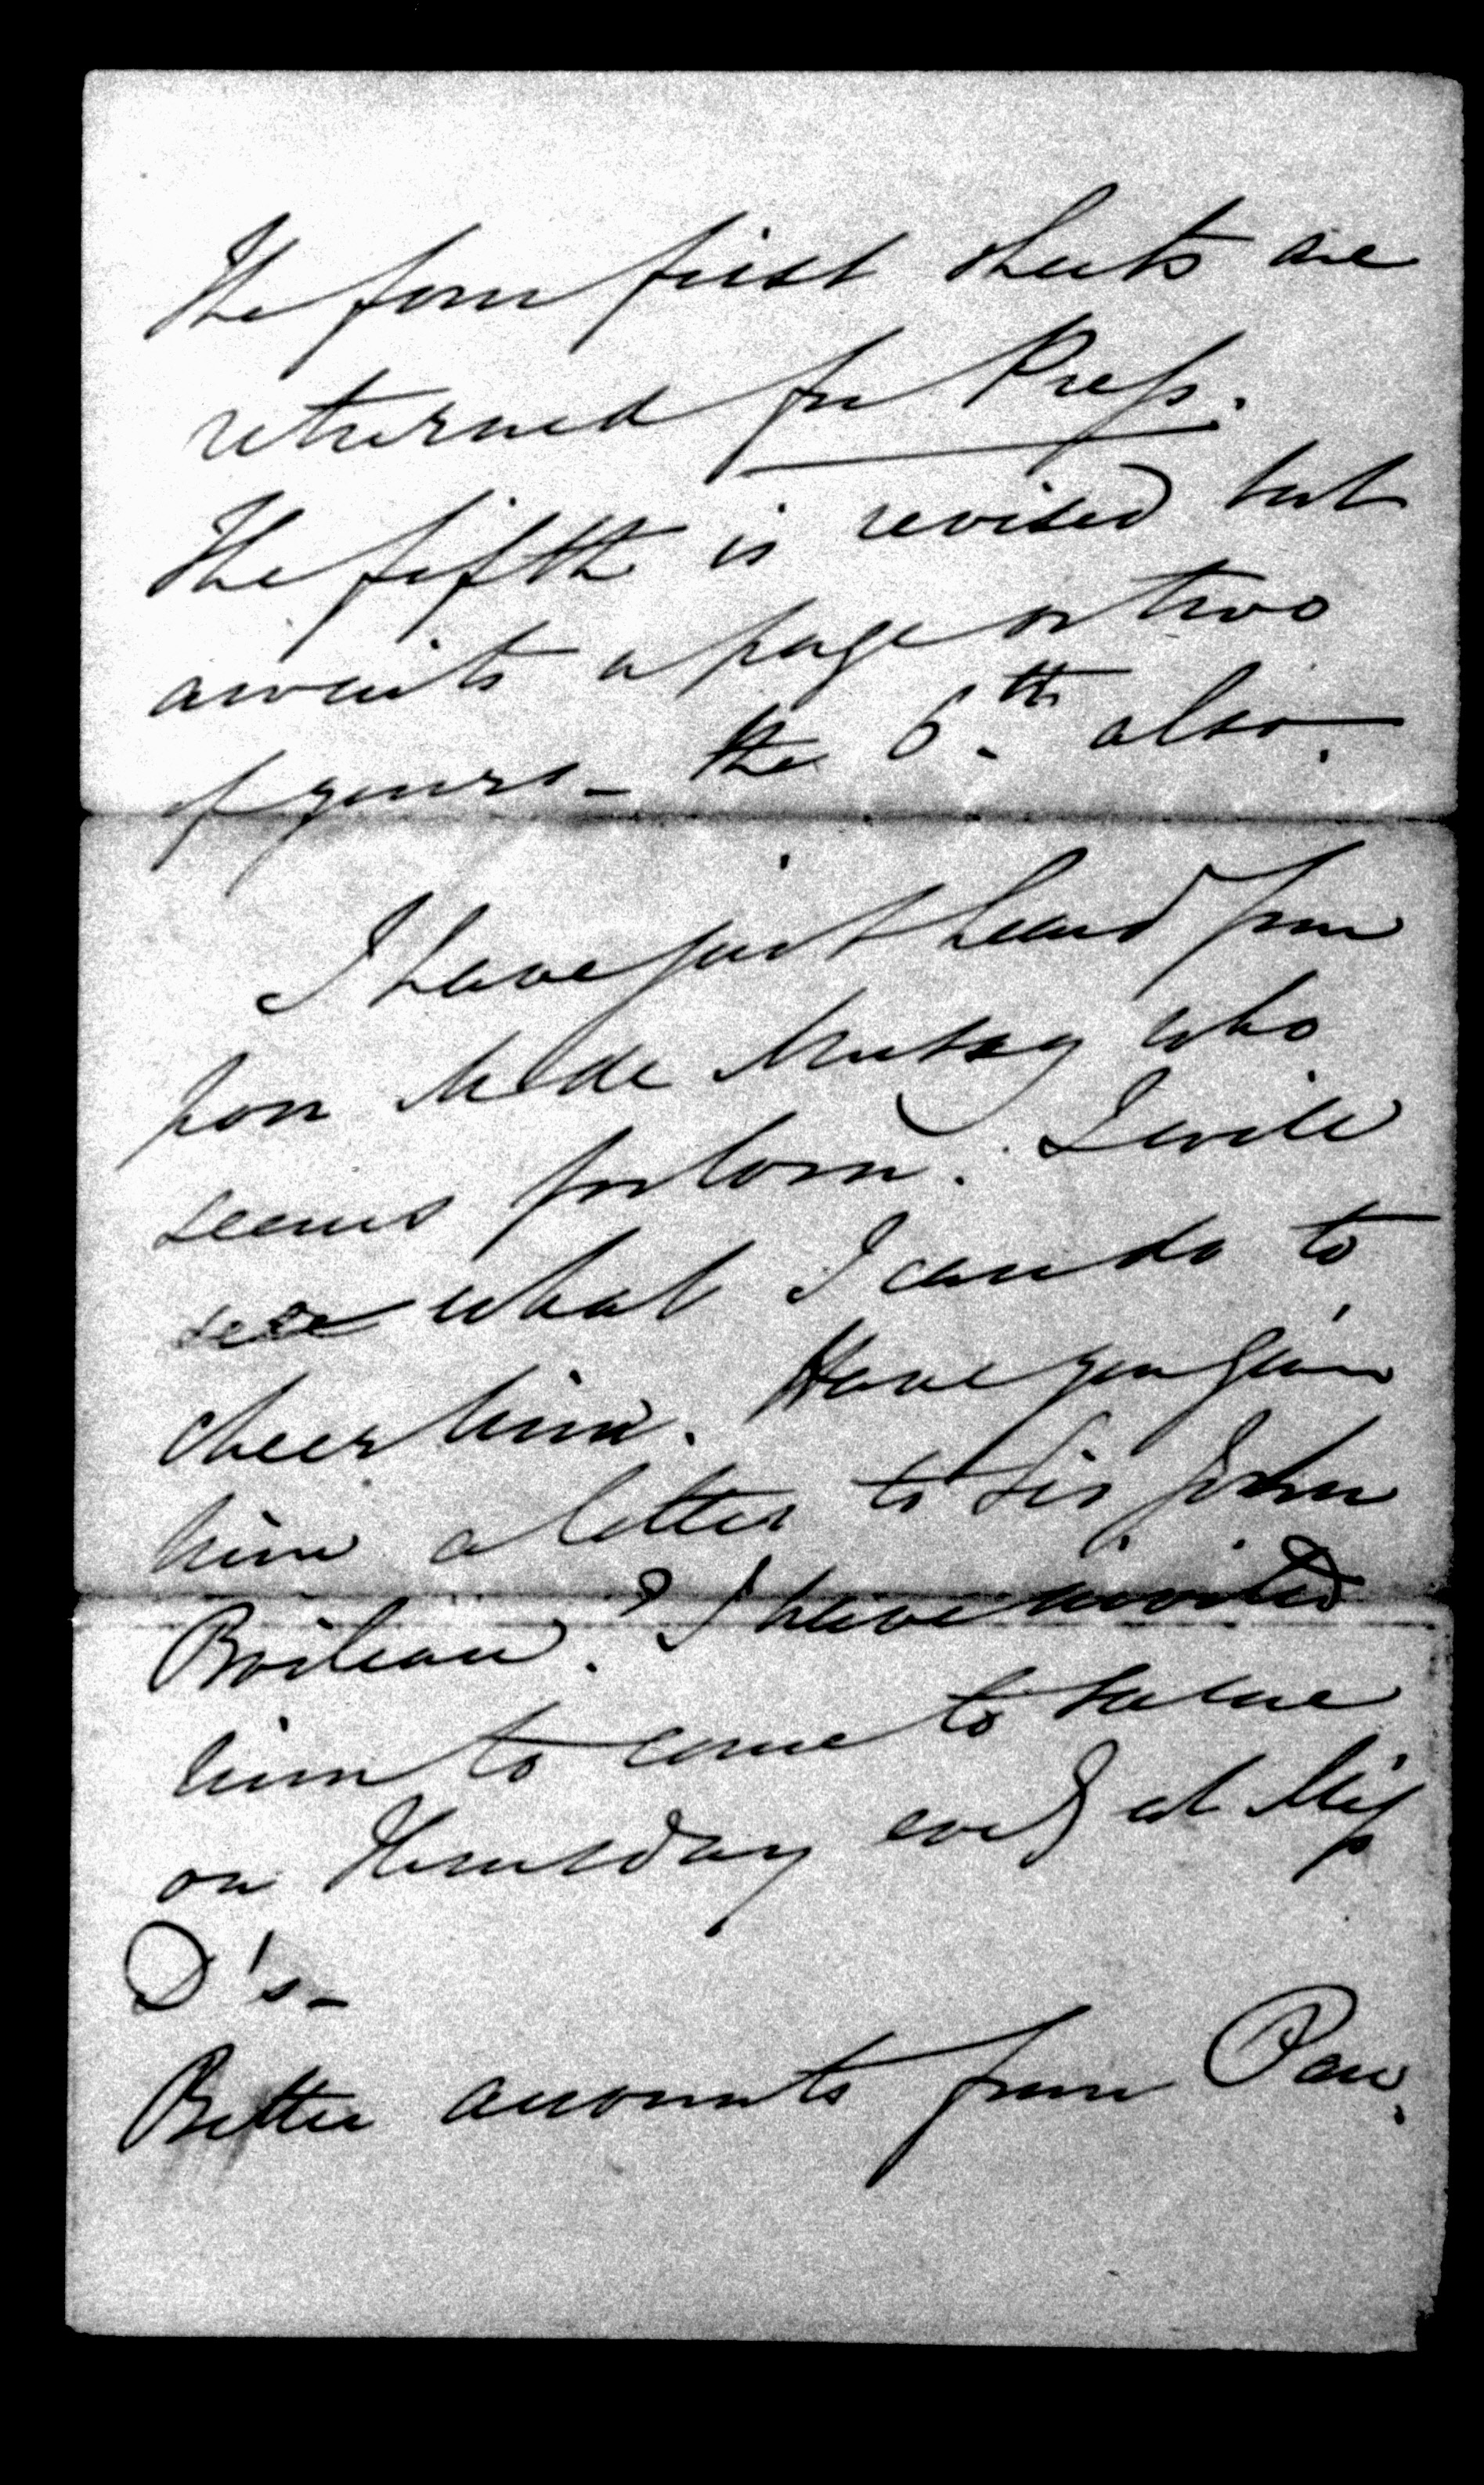 The four first sheets are
returned for Press.
The fifth is revised but
awaits a page or two
of yours – the 6th also.
I have just heard from
poor M. de who
seems forlorn. I will
see what I can do to
cheer him. Have you given
him a letter to Sir John
Boileau? I have invited
him to come to
on Thursday eveg at Miss
D's –
Better accounts from Pau.